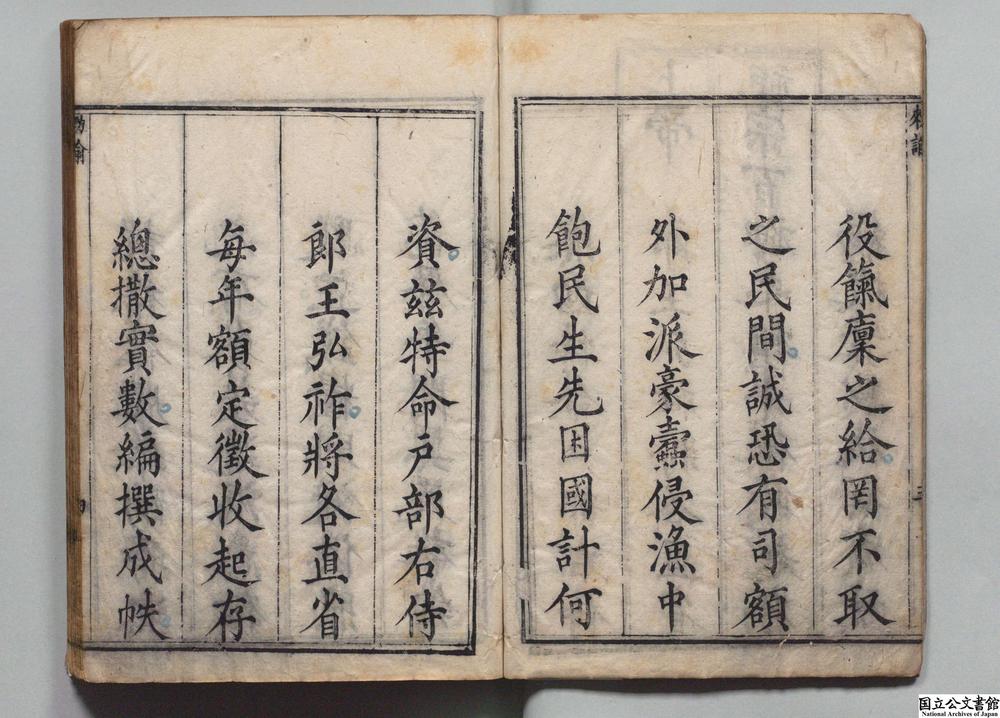 役餼廩之給罔不取
之民間誠恐有司額
外加派豪蠹侵漁中
飽民生先困國計何
資茲特命戶部右侍
郎王弘祚將各直省
每年額定徵收起存
總撒實數編撰成帙
敕諭
三
四
国立公文書館
National Archives of Japan